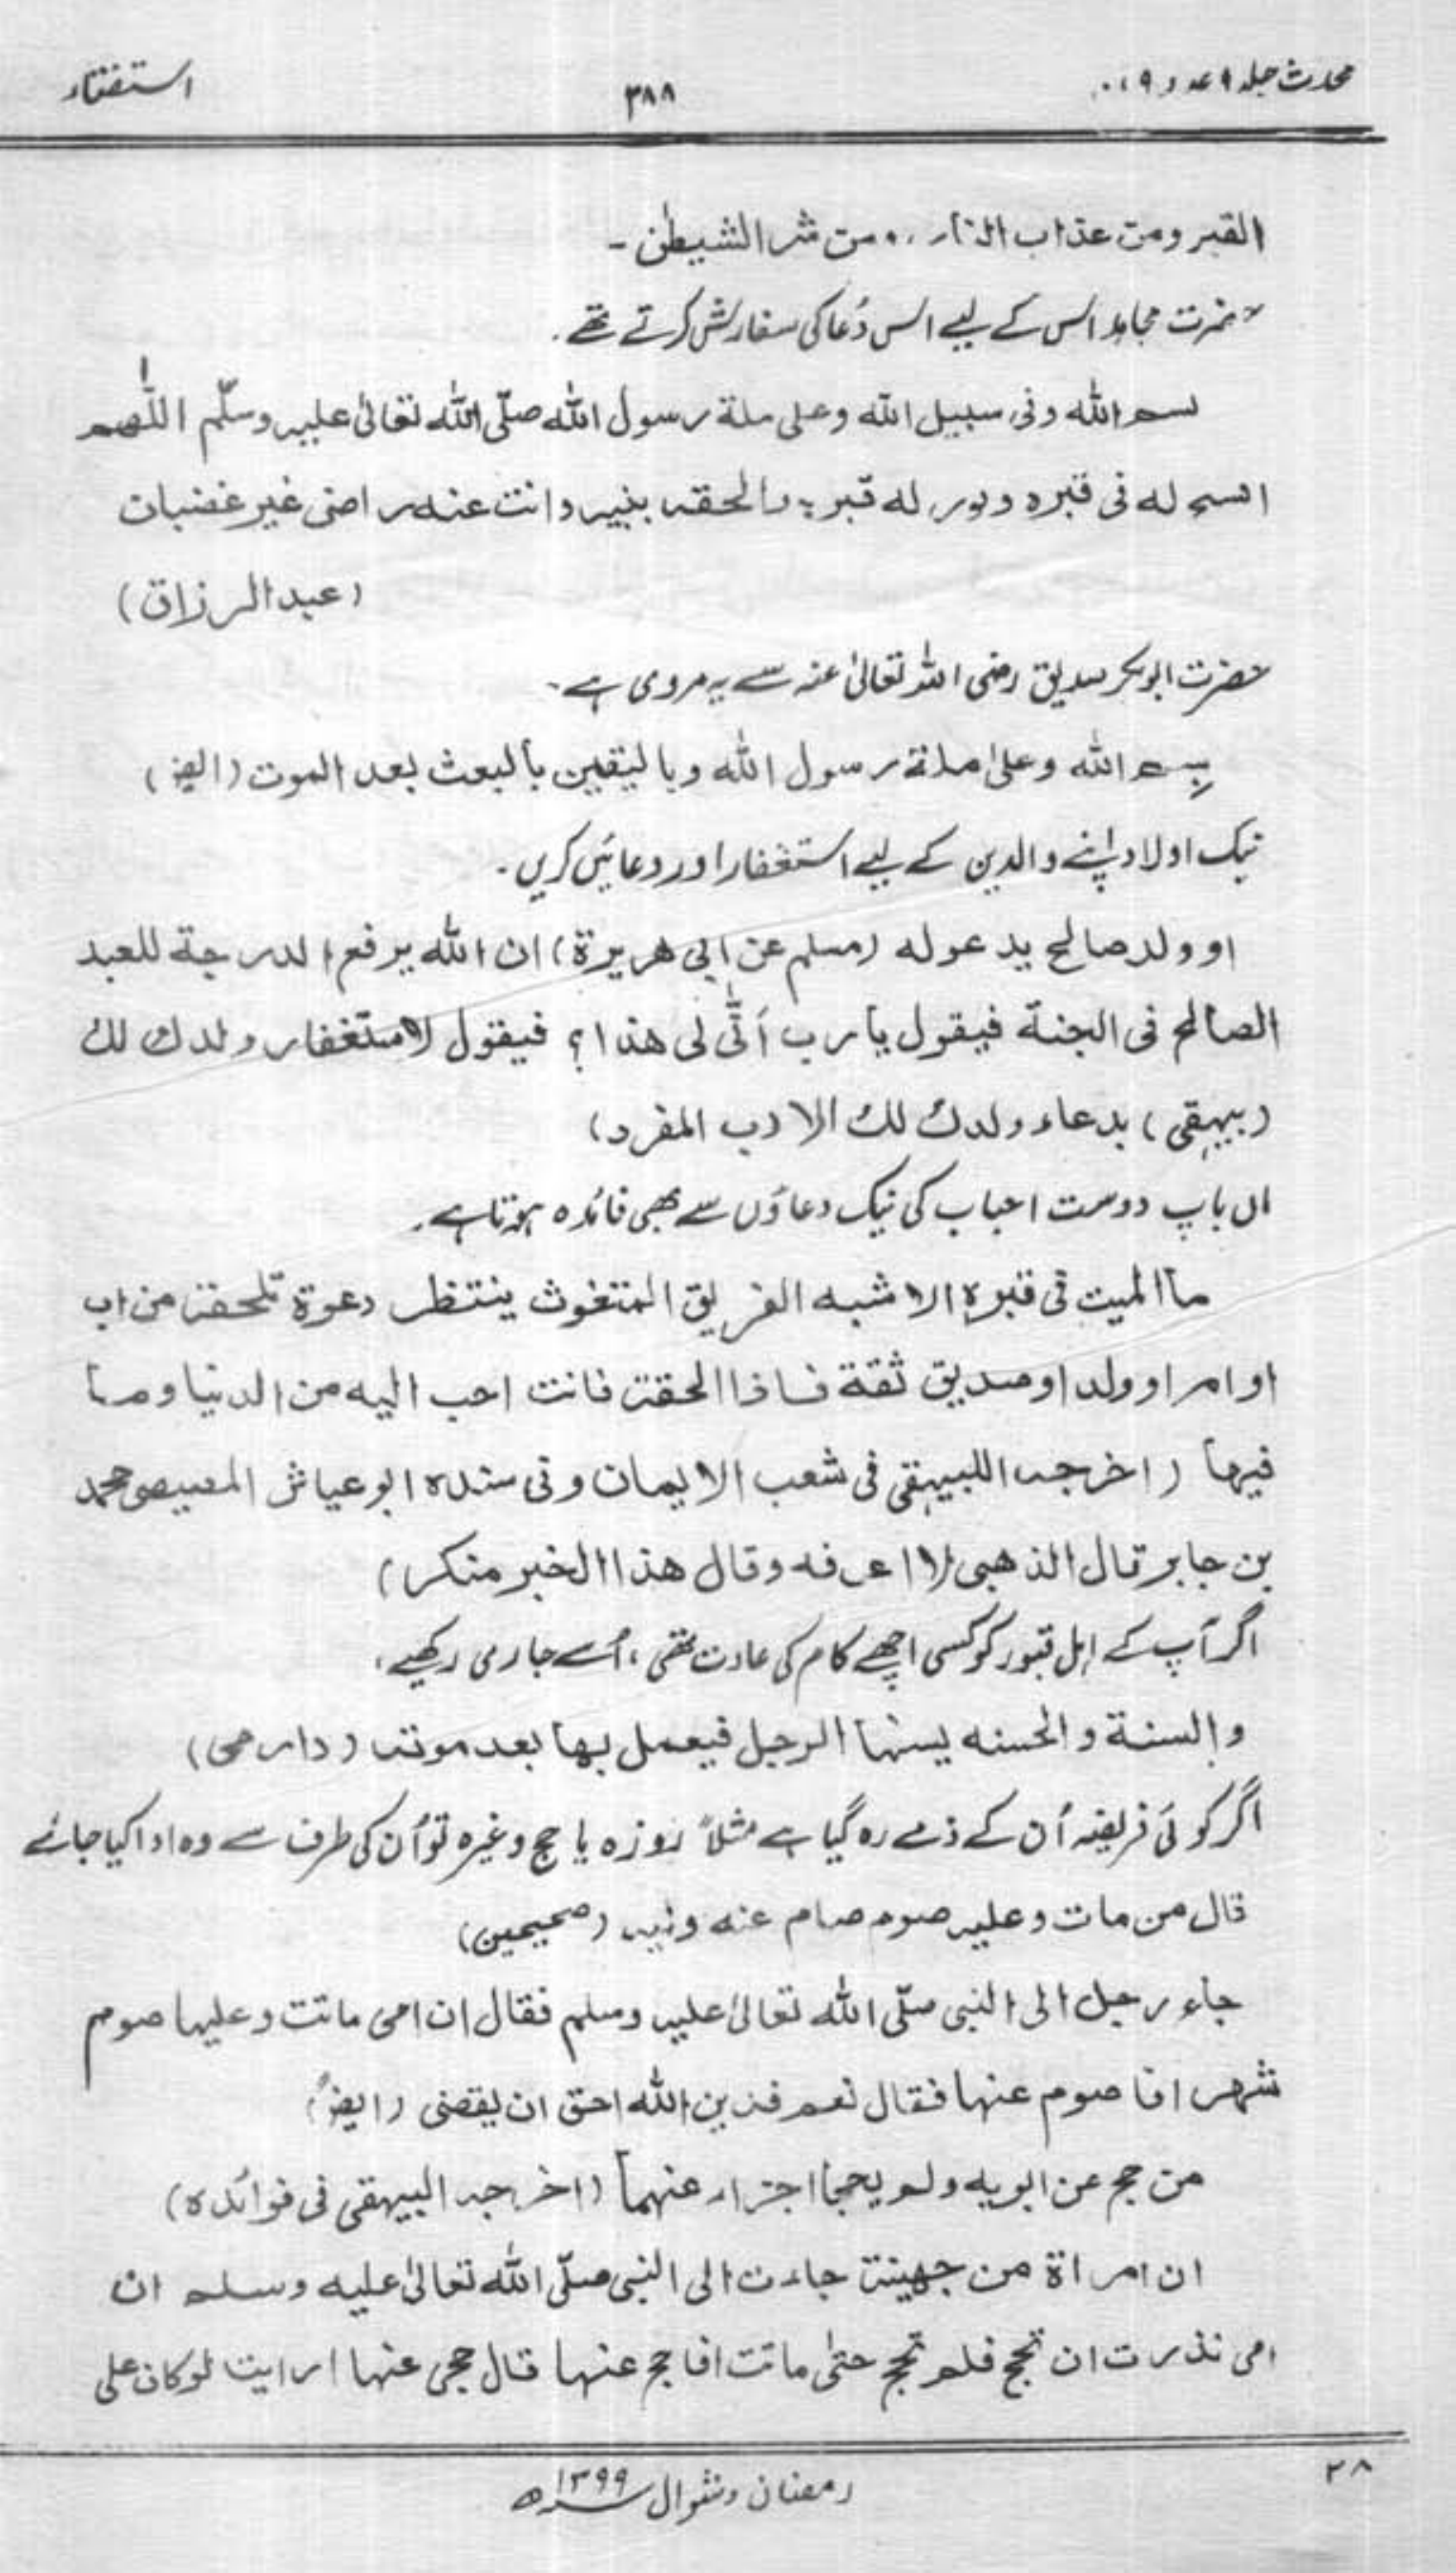 محدث جلد ۹ عدد ۹، ۱۰
۳۸۸
استفتاء
القبر ومن عذاب النار ومن شر الشیطٰن -
حضرت مجاہد اس کے لیے اس دُعا کی سفارش کرتے تھے۔
بسم اللہ وفی سبیل اللہ وعلی ملة رسول اللہ صلّی اللہ تعالیٰ علیہ وسلّم اللّٰھم
افسح له فی قبرہ ونور له قبرہ والحقه بنبیه وانت عنه راضی غیر غضبان
(عبد الرزاق)
حضرت ابوبکر صدیق رضی اللہ تعالیٰ عنہ سے یہ مروی ہے۔
بِسم اللہ وعلیٰ ملة رسول اللہ وبالیقین بالبعث بعد الموت (ایضاً)
نیک اولاد اپنے والدین کے لیے استغفار اور دعائیں کریں۔
او ولد صالح یدعوله (مسلم عن ابی ھریرة) ان اللہ یرفع الدرجة للعبد
الصالح فی الجنة فیقول یا رب اَنّٰی لی ھذا؟ فیقول لاستغفار ولدك لك
(بیہقی) بدعاء ولدك لك الادب المفرد)
ماں باپ دوست احباب کی نیک دعاؤں سے بھی فائدہ ہوتا ہے۔
ما المیت فی قبرہ الا شبه الغریق المتغوث ینتظر دعوة تلحقه من اب
او ام او ولد او صدیق ثقة فاذا الحقته فانت احب الیه من الدنیا وما
فیھا (اخرجه اللبیہقی فی شعب الایمان وفی سندہ ابو عیاش المصیصی محمد
بن جابر قال الذھبی لا اعرفه وقال ھذا الخبر منکر)
اگر آپ کے اہل قبور کو کسی اچھے کام کی عادت تھی، اُسے جاری رکھیے۔
والسنة والحسنه یسنھا الرجل فیعمل بھا بعد موته (دارمی)
اگر کوئی فریضہ اُن کے ذمے رہ گیا ہے مثلاً روزہ یا حج وغیرہ تو اُن کی طرف سے وہ ادا کیا جائے
قال من مات وعلیه صوم صام عنه ولیه (صحیحین)
جاء رجل الی النبی صلّی اللہ تعالیٰ علیه وسلم فقال ان امی ماتت وعلیھا صوم
شھر افاصوم عنھا فقال نعم فدین اللہ احق ان یقضی (ایضاً)
من حج عن ابویه ولم یحجا اجزاء عنھما (اخرجه البیہقی فی فوائدہ)
ان امراة من جھینة جاءت الی النبی صلّی اللہ تعالیٰ علیه وسلم ان
امی نذرت ان تحج فلم تحج حتیٰ ماتت افاحج عنھا قال حجی عنھا ارایت لو کان علی
رمضان وشوال ۱۳۹۹ھ
۲۸